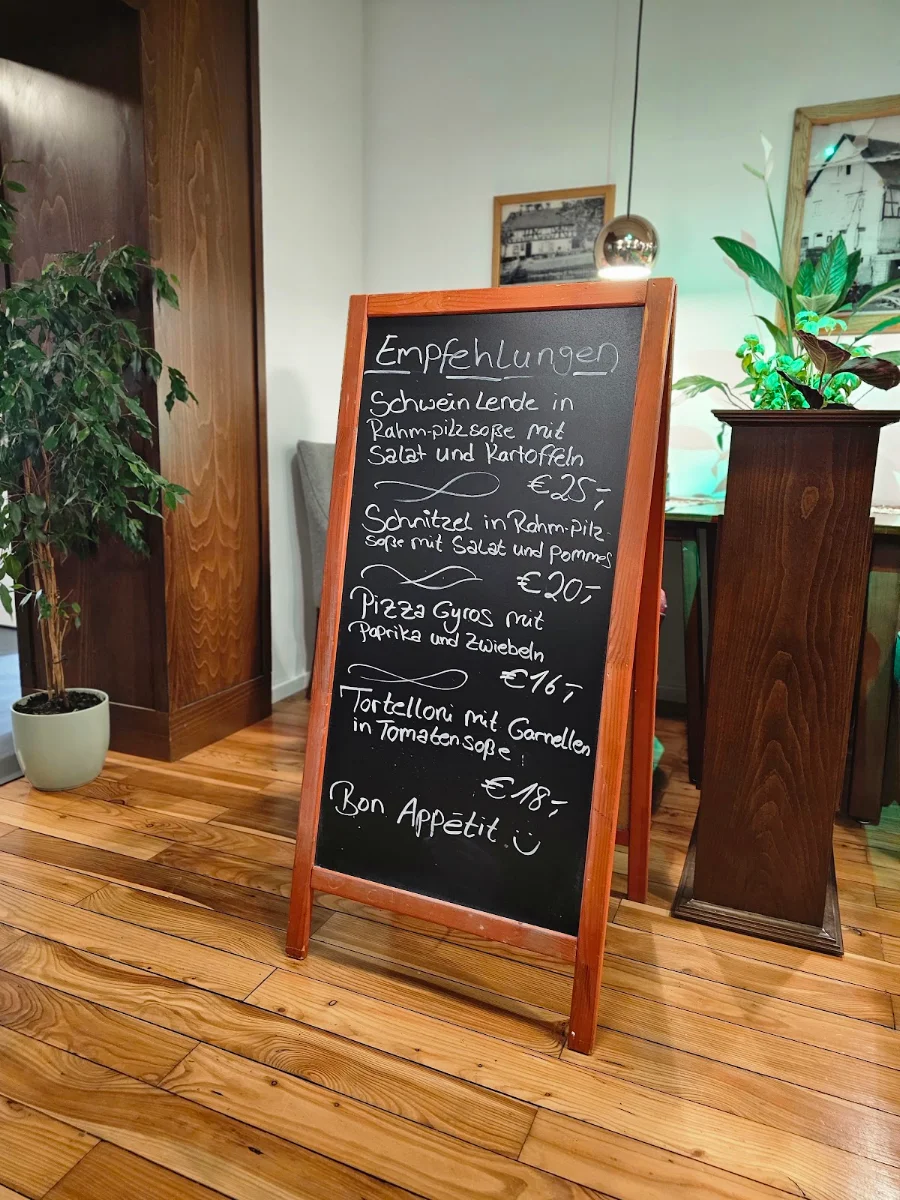 Empfehlungen
Schwein Lende in
Rahm-pilzsoße mit
Salat und Kartoffeln
€25,-
Schnitzel in Rahm-Pilz-
soße mit Salat und Pommes
€20,-
Pizza Gyros mit
Paprika und Zwiebeln
€16,-
Tortelloni mit Garnellen
in Tomatensoße
€18,-
Bon Appétit